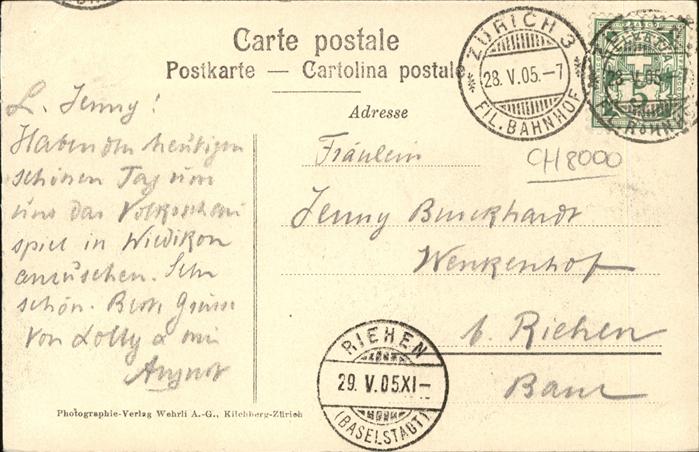 Carte postale
Postkarte — Cartolina postale
Adresse
ZÜRICH 3
28. V. 05. – 7
FIL. BAHNHOF
HELVETIA
5
28. V. 05. – 7
L. Jenny!
Haben den heutigen
schönen Tag um
uns das Volksschau
spiel in Wiedikon
anzusehen. Sehr
schön. Beste Grüsse
von Lolly &
August
Fräulein
CH8000
Jenny Burckhardt
Wenkenhof
b. Riehen
Basel
RIEHEN
29. V. 05 XI –
(BASELSTADT)
Photographie-Verlag Wehrli A.-G., Kilchberg-Zürich